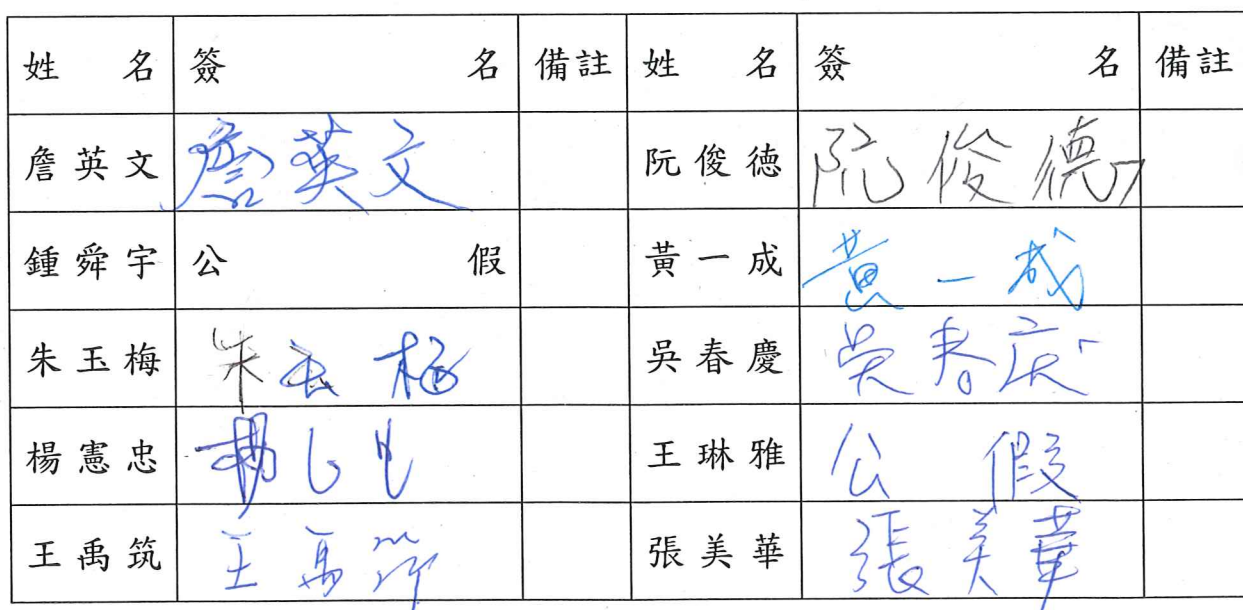 姓名 簽名 備註 姓名 簽名 備註
詹英文 詹英文 阮俊德 阮俊德
鍾舜宇 公假 黃一成 黃一成
朱玉梅 朱玉梅 吳春慶 吳春庆
楊憲忠 楊 王琳雅 公假
王禹筑 王禹筑 張美華 張美華